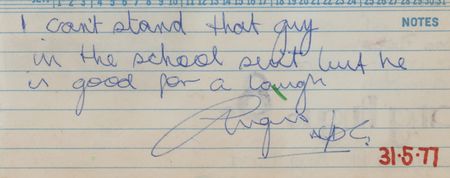 NOTES
I can't stand that guy
in the school suit but he
is good for a laugh
Angus
31·5·77